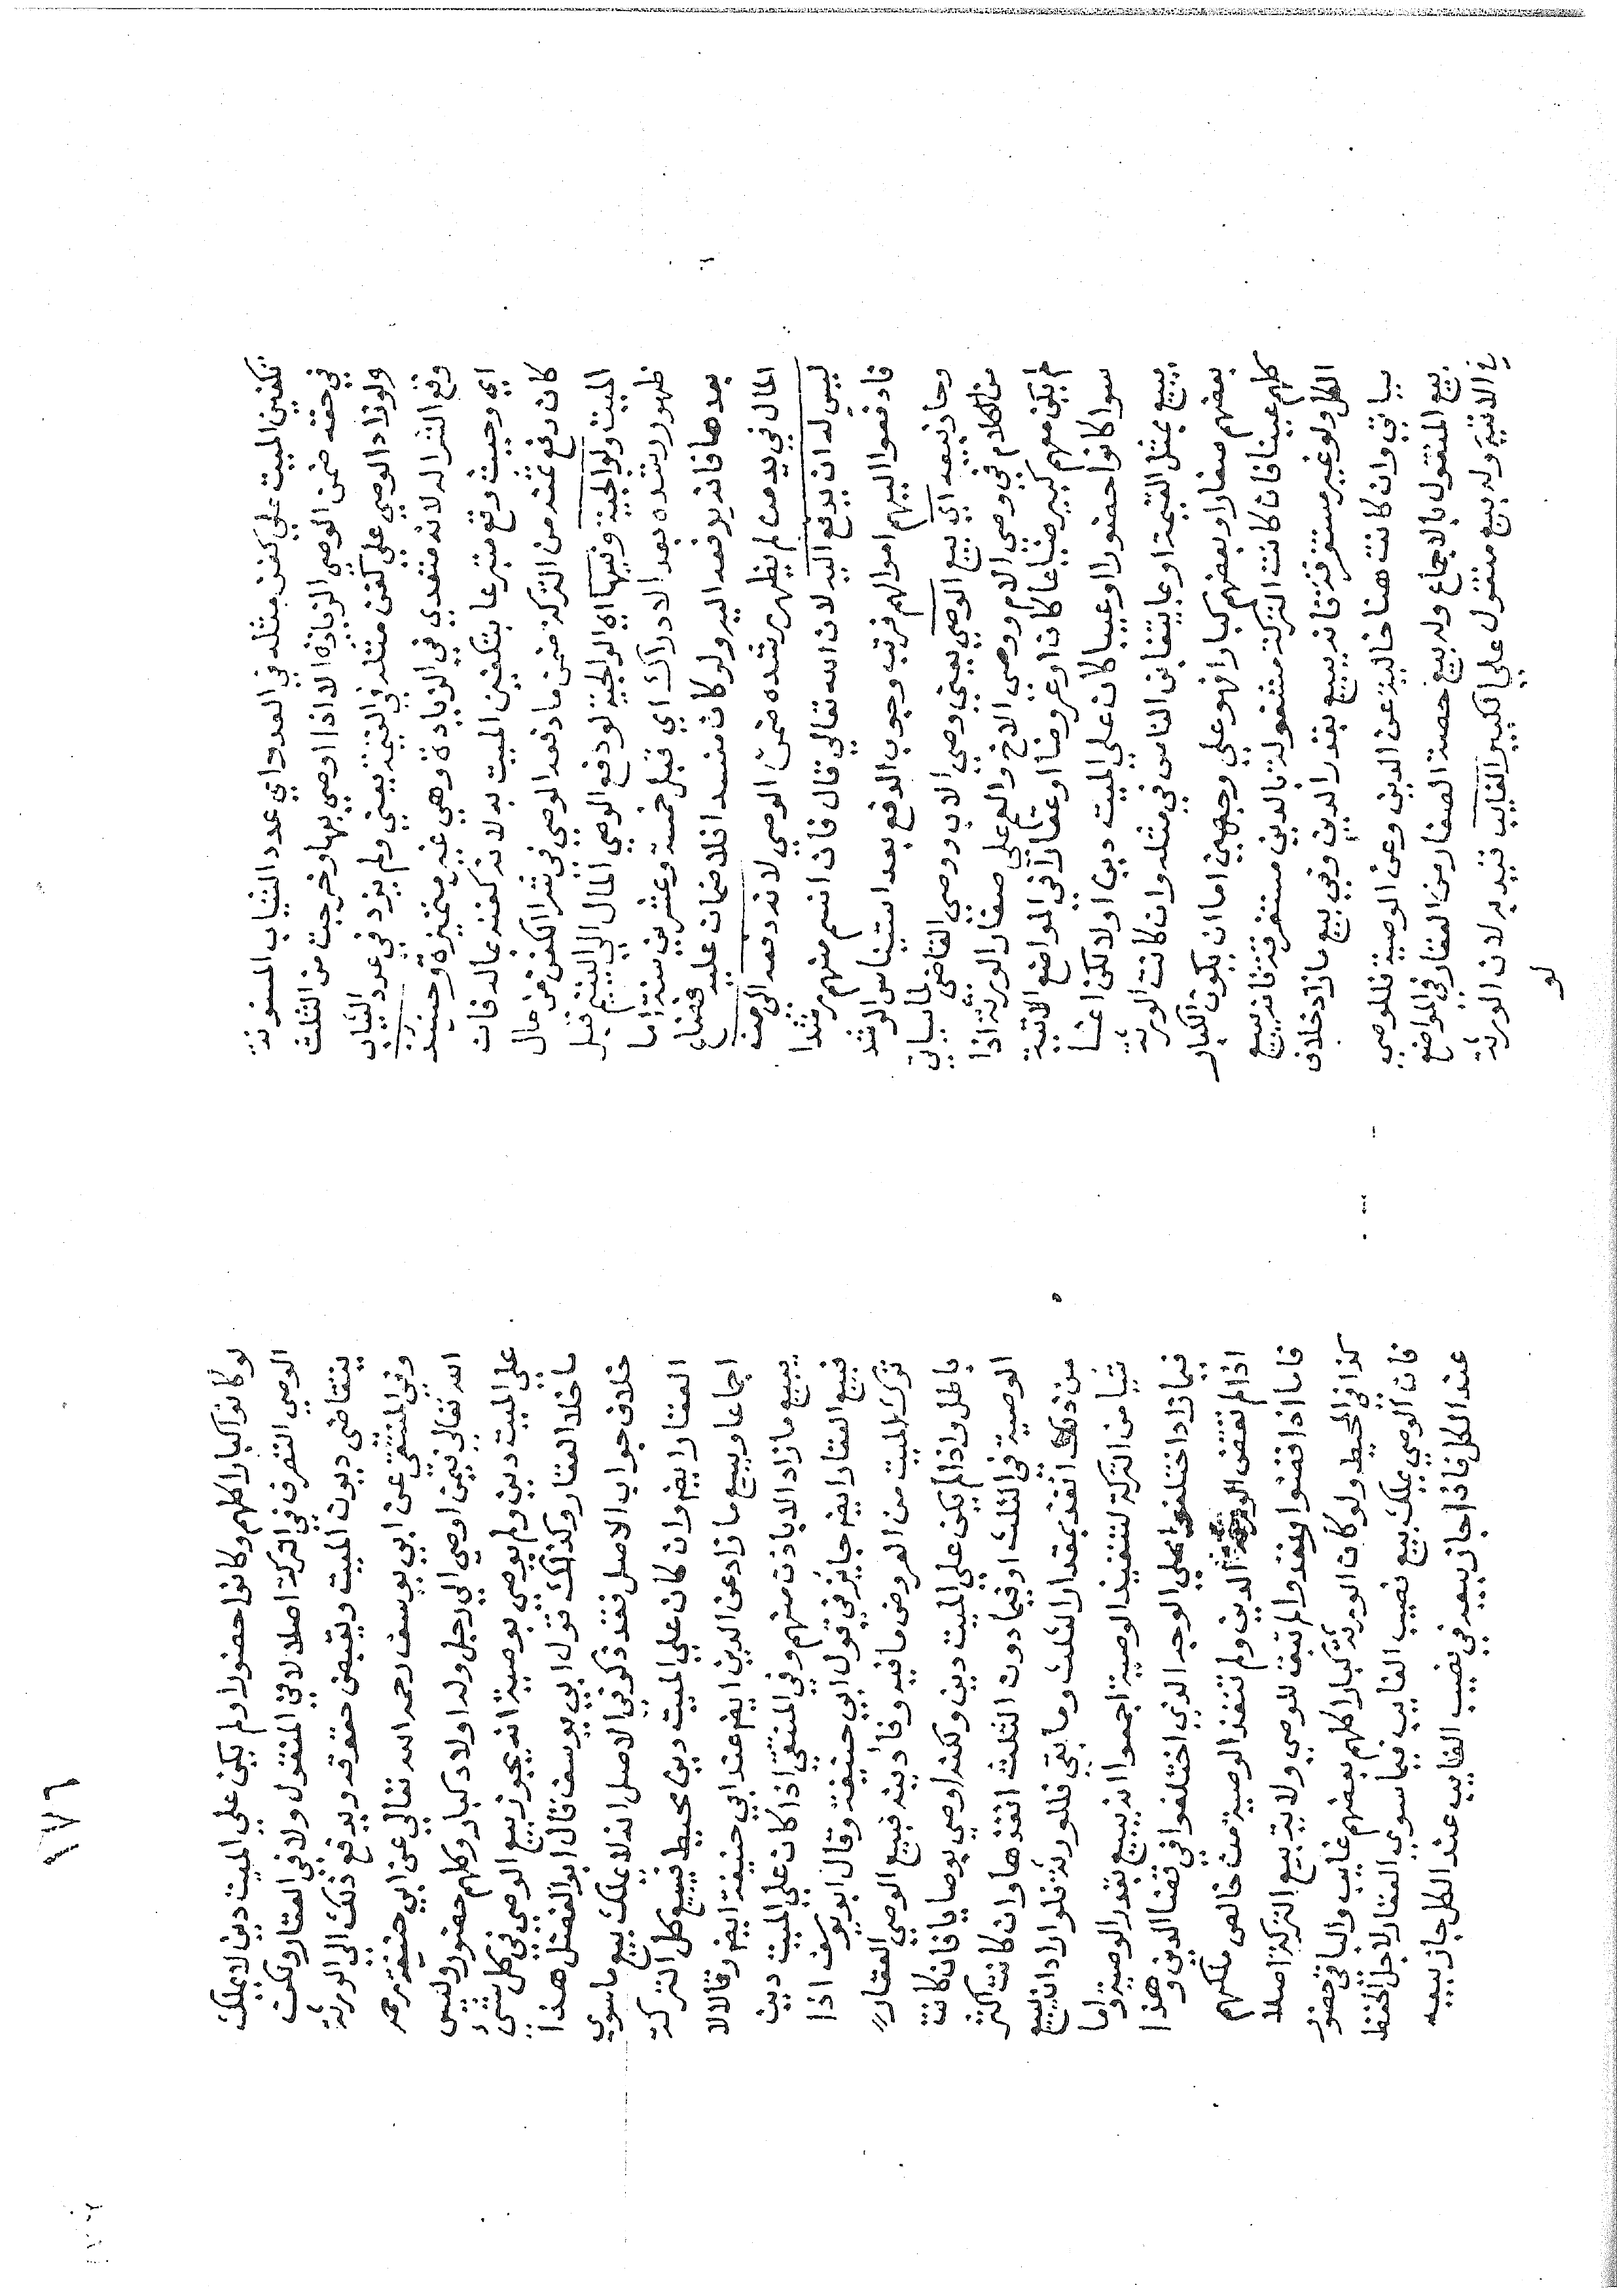 تكفين الميت علي كفن مثله في العدد اي عدد الثياب المسنونة
في حقه ضمن الوصي الزيادة الا اذا اوصي بها وخرجت من الثلث
ولو زاد الوصي علي كفن مثله في القيمة يعني ولم يزد في عدد الثياب
وقع الشرا له لانه متعدي في الزيادة وهي غير متميزة وحينيذ
اي وحيث وقع متبرعا بتكفين الميت به لانه كفنه بماله فان
كان دفع ثمنه من التركة ضمن ما دفعه الوصي في شرا الكفن من مال
الميت ولو الجية وفيها اي الولوالجية لو دفع الوصي المال الي اليتيم قبل
ظهور رشده بعد الادراك اي قبل خمسة وعشرين سنة اما
بعدها فانه يدفعه اليه ولو كان مفسدا فلا ضمان عليه فضاع
المال في يده من لم يظهر رشده ضمن الوصي لانه دفعه الي من
ليس له ان يدفع اليه لان الله تعالي قال فان انستم منهم رشدا
فادفعوا اليهم اموالهم فرتب وجوب الدفع بعد استيناس الرشد
وجاز بيعه اي بيع الوصي يعني وصي الاب ووصي القاضي لما سياتي
من الكلام في وصي الام ووصي الاخ والعم علي صغار الورثة اذا
لم يكن معهم كبير ضياعا كان او عروضا او عقارا في المواضع الاتية
سوا كانوا حضورا او غيبا كان علي الميت دين اولا لكن انما
يبيع بمثل القيمة او بما يتغابن الناس في مثله وان كانت الورثة
بعضهم صغارا وبعضهم كبارا فهو علي وجهين اما ان يكون الكبار
كلهم غيبا فان كانت التركة مشغولة بالدين مستغرقة فانه يبيع
الكل ولو غير مستغرقة فانه يبيع بقدر الدين وفي بيع ما زاد خلاف
سياتي وان كانت هنا خالية عن الدين وعن الوصية فللوصي
بيع المنقول بالاجماع وله بيع حصة الصغار من العقار في المواضع
الاتية وله بيع منقول علي الكبير الغايب قيد به لان الورثة
لو
١٧٦
لو كانوا كبارا كلهم وكانوا حضورا ولم يكن علي الميت دين لا يملك
الوصي التصرف في التركة اصلا لا في المنقول ولا في العقار ولكن
يتقاضي ديون الميت ويقبض حقوقه ويدفع ذلك الي الورثة
وفي المنتقي عن ابي يوسف رحمه الله تعالي عن ابي حنيفة رحمه
الله تعالي فيمن اوصي الي رجل وله اولاد كبار وكلهم حضور وليس
علي الميت دين ولم يوصي بوصية انه يجوز بيع الوصي في كل شي
ما خلا العقار وكذلك قول ابي يوسف قال ابو الفضل هذا
خلاف جواب الاصل فقد ذكر في الاصل انه لا يملك بيع ما سوي
العقار ايضا وان كان علي الميت دين محيط يبيع كل التركة
اجماعا ويبيع ما زاد عن الدين ايضا عند ابي حنيفة ايضا وقالا لا
يبيع ما زاد الا باذن منهم وفي المنتقي اذا كان علي الميت دين
فبيع العقار ايضا جايز في قول ابي حنيفة وقال ابو يوسف اذا
ترك الميت من العروض ما فيه وفا دينه فبيع الوصي العقار
باطل واذا لم يكن علي الميت دين ولكنه اوصي بوصايا فان كانت
الوصية في الثلث او فيما دون الثلث انفذها وان كانت اكثر
من ذلك انفذ بمقدار الثلث وما بقي فللورثة فلو اراد ان يبيع
شيا من التركة لتنفيذ الوصية اجمعوا انه يبيع بقدر الوصية واما
فيما زاد اختلفوا علي الوجه الذي اختلفوا في قضا الدين وهذا
اذا لم تقض الورثة الدين ولم تنفذ الوصية من خالص ملكهم
فاما اذا قضوا ونفذوا لم تبق للوصي ولاية بيع التركة اصلا
كذا في المحيط ولو كان الورثة كبارا كلهم بعضهم غايب والباقي حضور
فان الوصي يملك بيع نصيب الغايب فيما سوي العقار لاجل الحفظ
عند الكل فاذا جاز بيعه في نصيب الغايب عند الكل جاز بيعه